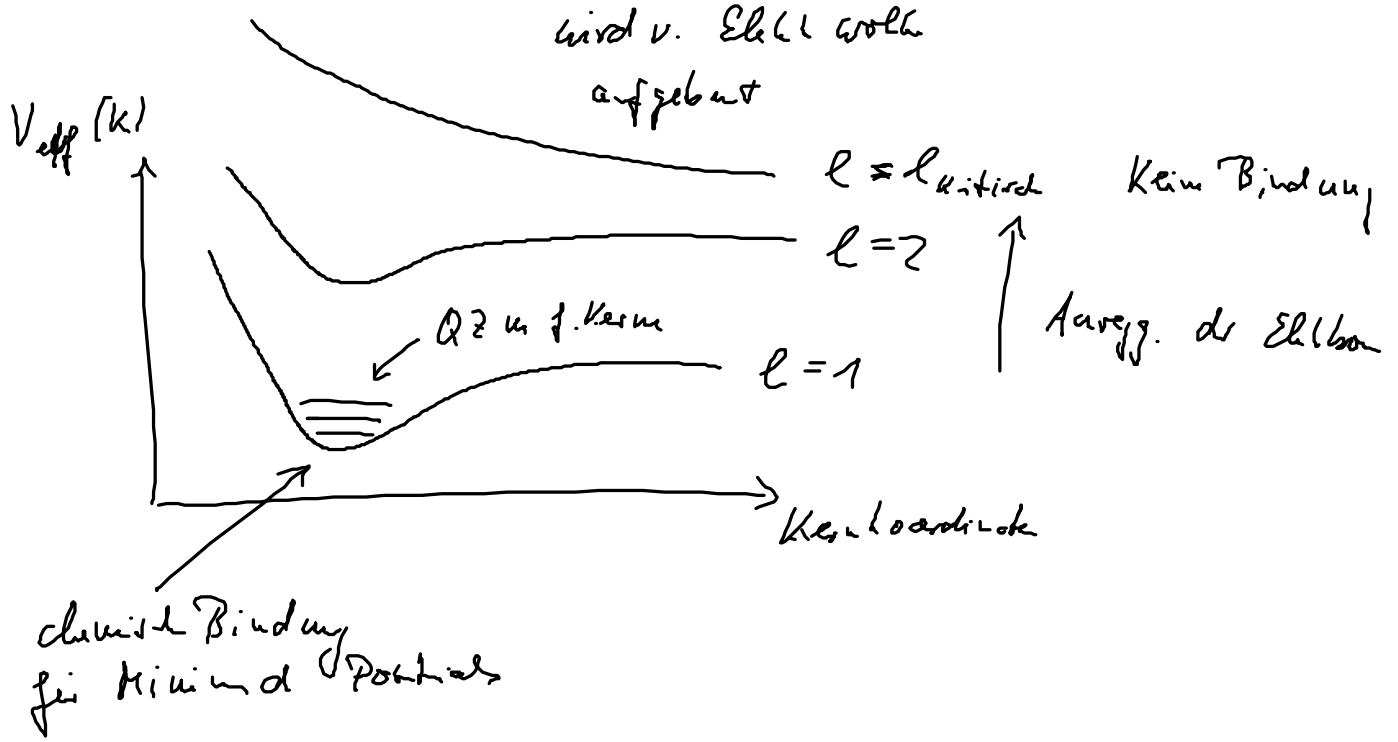 wird v. Elekt wolke
aufgebaut
V_eff [K]
l = l_kritisch Keine Bindung
l = 2
QZ n f. Kerne
Anregg. der Elektronen
l = 1
Kernkoordinaten
chemische Bindung
für Minimum d Potentials